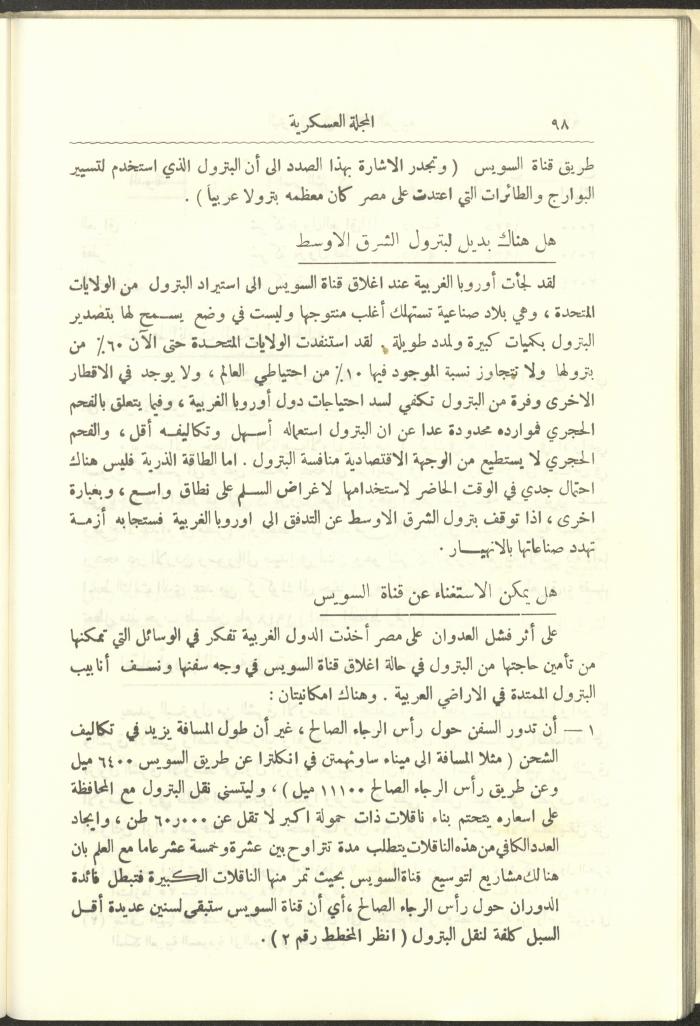 ٩٨
المجلة العسكرية
طريق قناة السويس ( وتجدر الاشارة بهذا الصدد الى أن البترول الذي استخدم لتسيير
البوارج والطائرات التي اعتدت على مصر كان معظمه بترولا عربياً ) .
هل هناك بديل لبترول الشرق الاوسط
لقد لجأت أوروبا الغربية عند اغلاق قناة السويس الى استيراد البترول من الولايات
المتحدة ، وهي بلاد صناعية تستهلك أغلب منتوجها وليست في وضع يسمح لها بتصدير
البترول بكميات كبيرة ولمدد طويلة . لقد استنفدت الولايات المتحدة حتى الآن ٦٠٪ من
بترولها ولا تتجاوز نسبة الموجود فيها ١٠٪ من احتياطي العالم ، ولا يوجد في الاقطار
الاخرى وفرة من البترول تكفي لسد احتياجات دول أوروبا الغربية ، وفيما يتعلق بالفحم
الحجري فموارده محدودة عدا عن ان البترول استعماله أسهل وتكاليفه أقل ، والفحم
الحجري لا يستطيع من الوجهة الاقتصادية منافسة البترول . اما الطاقة الذرية فليس هناك
احتمال جدي في الوقت الحاضر لاستخدامها لاغراض السلم على نطاق واسع ، وبعبارة
اخرى ، اذا توقف بترول الشرق الاوسط عن التدفق الى اوروبا الغربية فستجابه أزمة
تهدد صناعاتها بالانهيار .
هل يمكن الاستغناء عن قناة السويس
على أثر فشل العدوان على مصر أخذت الدول الغربية تفكر في الوسائل التي تمكنها
من تأمين حاجتها من البترول في حالة اغلاق قناة السويس في وجه سفنها ونسف أنابيب
البترول الممتدة في الاراضي العربية . وهناك امكانيتان :
١ — أن تدور السفن حول رأس الرجاء الصالح ، غير أن طول المسافة يزيد في تكاليف
الشحن ( مثلا المسافة الى ميناء ساوثهمتن في انكلترا عن طريق السويس ٦٤٠٠ ميل
وعن طريق رأس الرجاء الصالح ١١١٠٠ ميل ) ، وليتسنى نقل البترول مع المحافظة
على اسعاره يتحتم بناء ناقلات ذات حمولة اكبر لا تقل عن ٦٠٫٠٠٠ طن ، وايجاد
العدد الكافي من هذه الناقلات يتطلب مدة تتراوح بين عشرة وخمسة عشر عاما مع العلم بان
هنا لك مشاريع لتوسيع قناة السويس بحيث تمر منها الناقلات الكبيرة فتبطل فائدة
الدوران حول رأس الرجاء الصالح ، أي أن قناة السويس ستبقى لسنين عديدة أقل
السبل كلفة لنقل البترول ( انظر المخطط رقم ٢ ) .